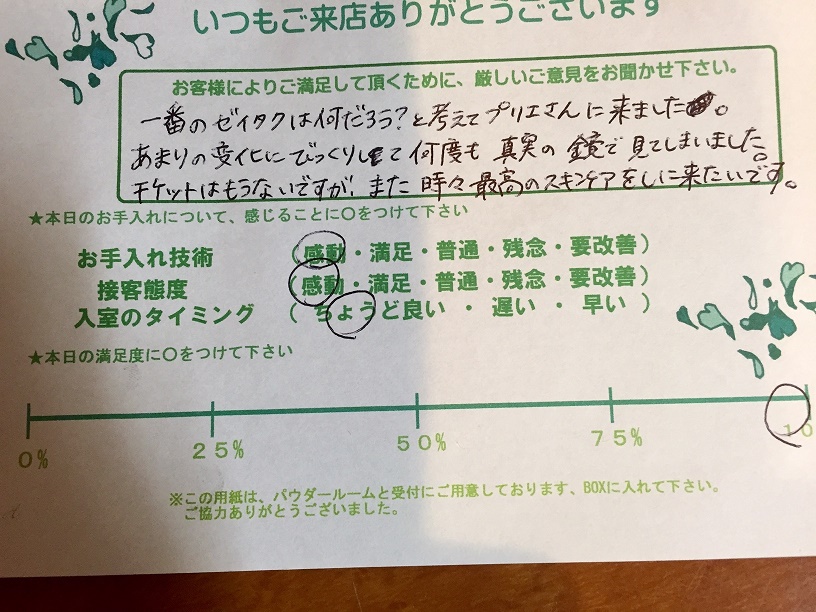 いつもご来店ありがとうございます
お客様によりご満足して頂くために、厳しいご意見をお聞かせ下さい。
一番のゼイタクは何だろう?と考えてプリエさんに来ました。
あまりの変化にびっくりして何度も真実の鏡で見てしまいました。
チケットはもうないですが、また時々最高のスキンケアをしに来たいです。
★本日のお手入れについて、感じることに〇をつけて下さい
お手入れ技術 (感動・満足・普通・残念・要改善)
接客態度 (感動・満足・普通・残念・要改善)
入室のタイミング (ちょうど良い・遅い・早い)
★本日の満足度に〇をつけて下さい
0% 25% 50% 75% 10
※この用紙は、パウダールームと受付にご用意しております、BOXに入れて下さい。
ご協力ありがとうございました。